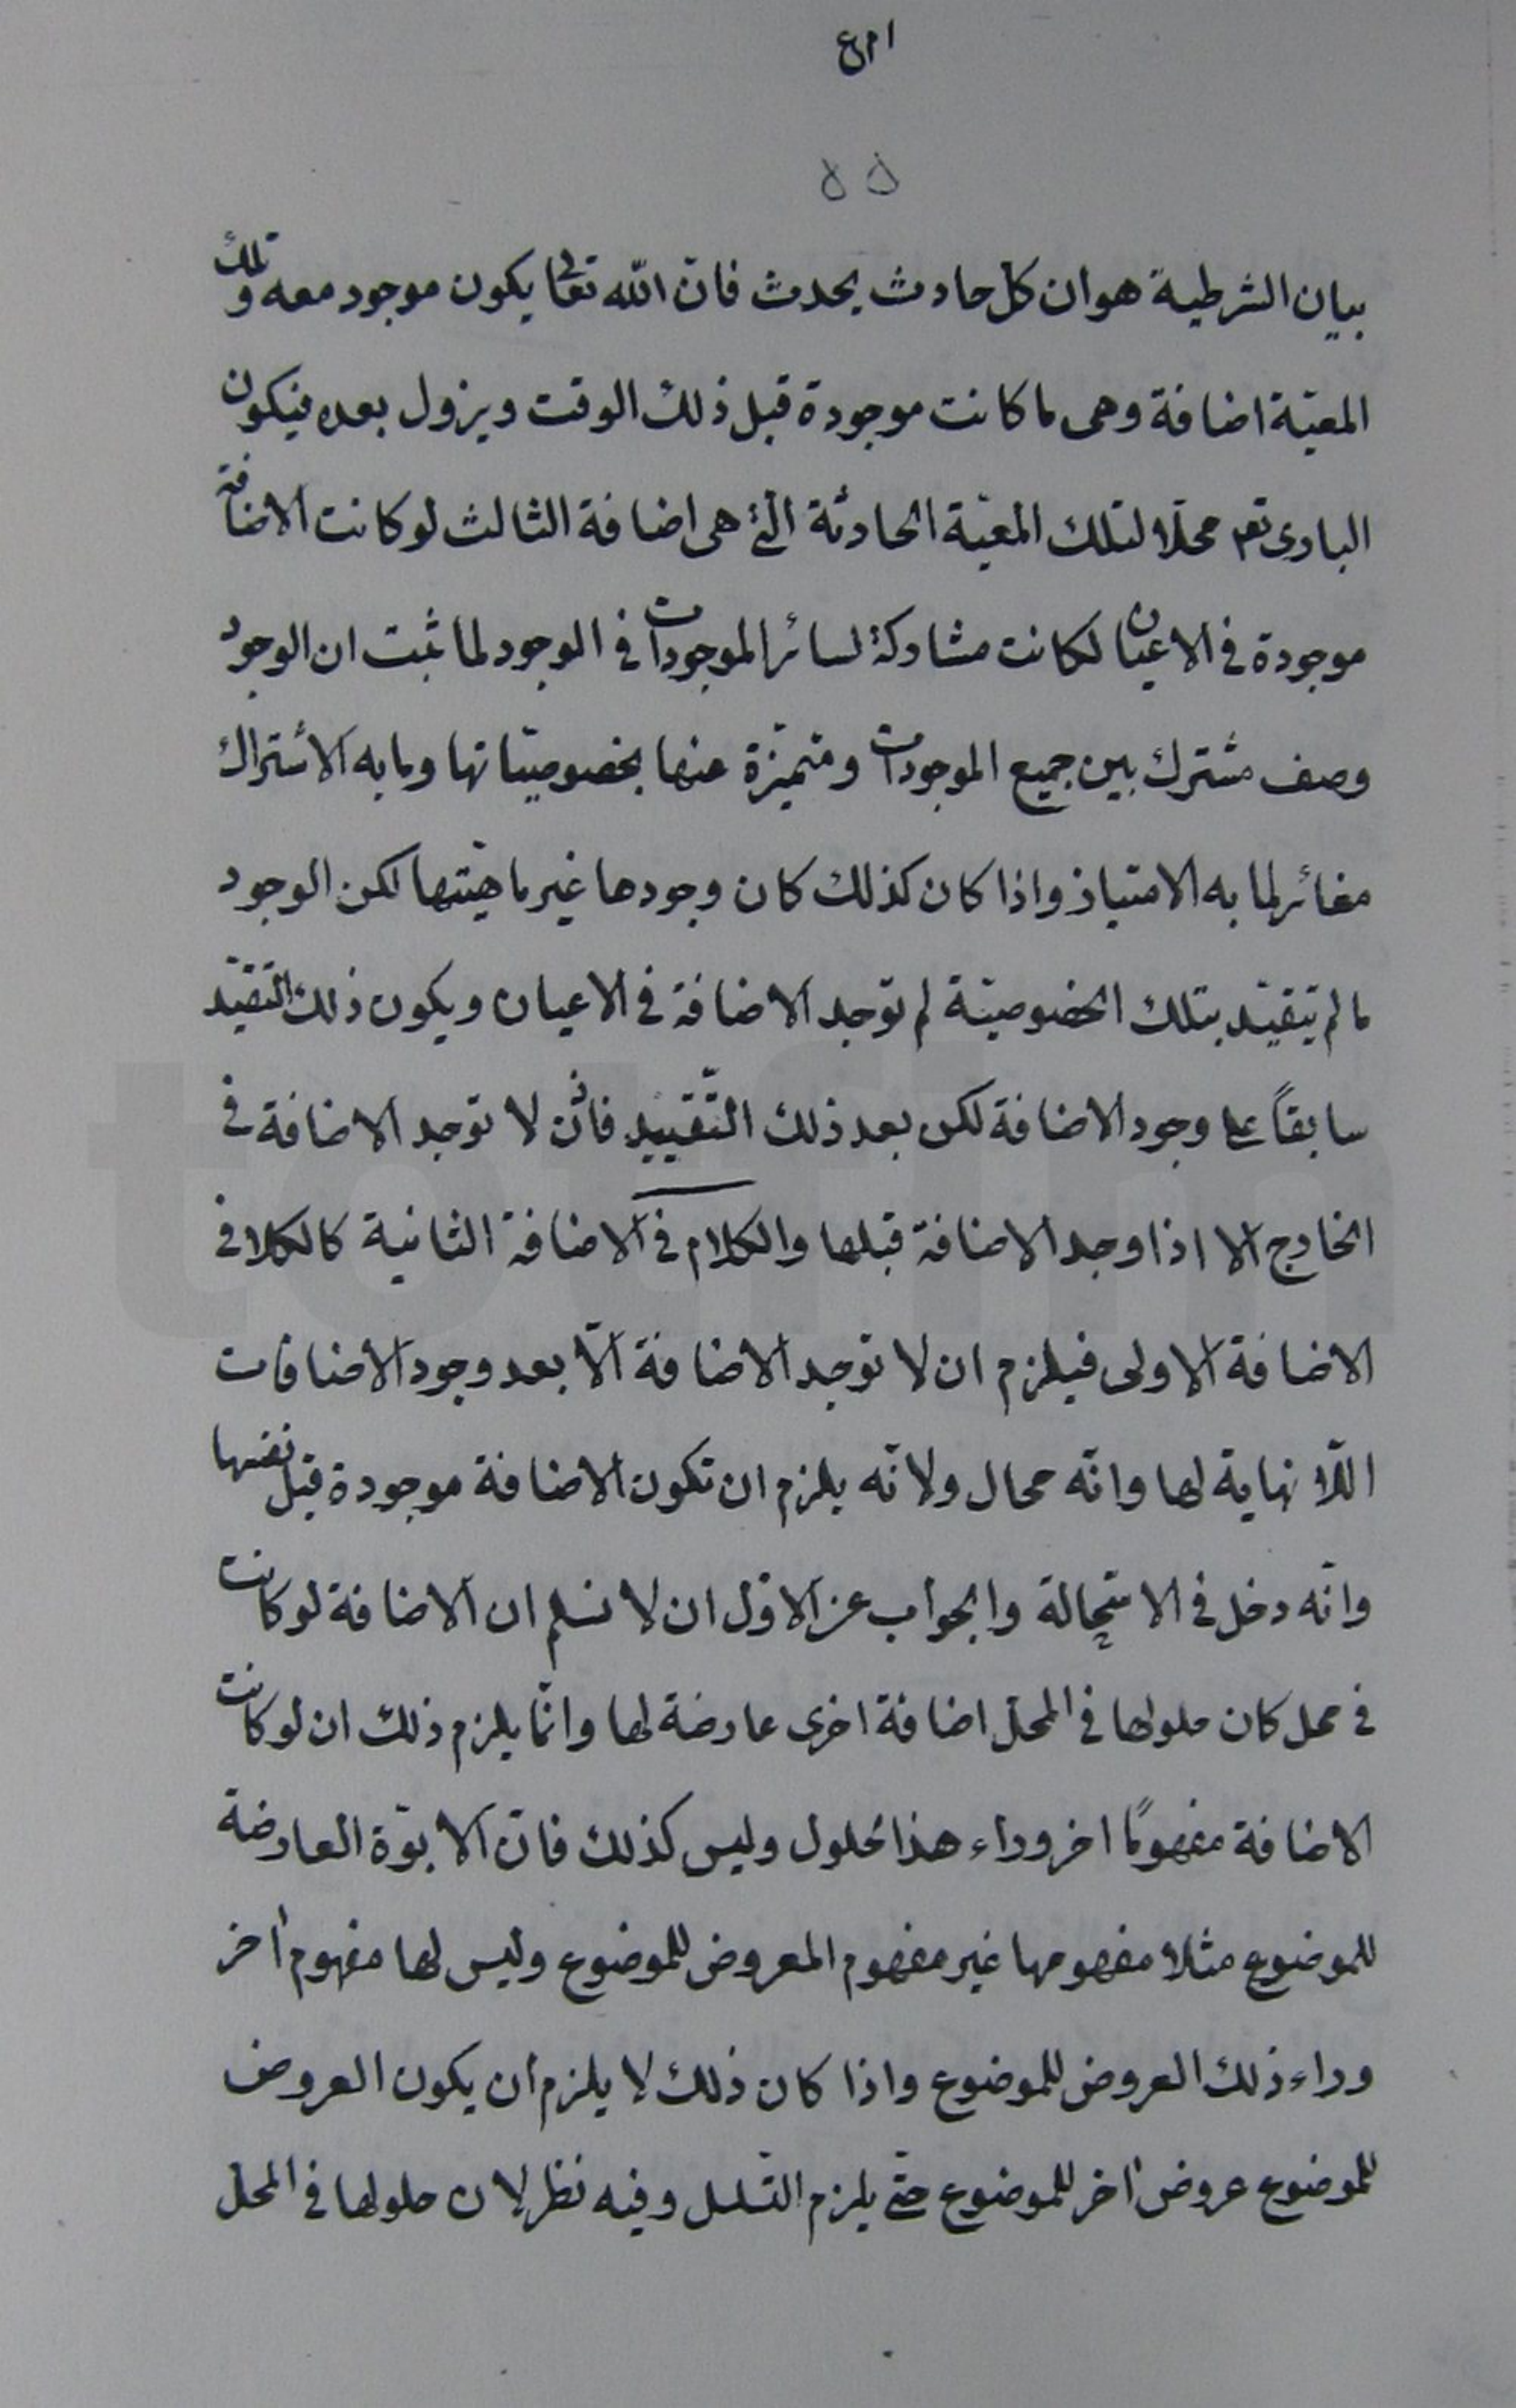 بيان الشرطية هو ان كل حادث يحدث فانّ اللّه تعالى يكون موجود معه وتلك
المعيّة اضافة وهى ما كانت موجودة قبل ذلك الوقت ويزول بعده فيكون
البارى تعم محلّا لتلك المعيّة الحادثة الّتى هى اضافة الثالث لو كانت الاضافة
موجودة فى الاعيان لكانت مشاركة لسائر الموجودات فى الوجود لما ثبت ان الوجود
وصف مشترك بين جميع الموجودات ومتميّزة عنها بخصوصيّاتها وما به الاشتراك
مغائر لما به الامتياز واذا كان كذلك كان وجودها غير ماهيّتها لكن الوجود
ما لم يتقيّد بتلك الخصوصيّة لم توجد الاضافة فى الاعيان ويكون ذلك التقيّد
سابقاً على وجود الاضافة لكن بعد ذلك التّقييد فاذن لا توجد الاضافة فى
الخارج الا اذا وجد الاضافة قبلها والكلام فى الاضافة الثانية كالكلام فى
الاضافة الاولى فيلزم ان لا توجد الاضافة الّا بعد وجود الاضافات
اللّا نهاية لها وانّه محال ولانّه يلزم ان تكون الاضافة موجودة قبل نفسها
وانّه دخل فى الاستحالة والجواب عن الاوّل ان لا نسلم ان الاضافة لو كانت
فى محل كان حلولها فى المحلّ اضافة اخرى عارضة لها وانّما يلزم ذلك ان لو كانت
الاضافة مفهومًا اخر وراء هذا الحلول وليس كذلك فانّ الابوّة العارضة
للموضوع مثلا مفهومها غير مفهوم المعروض للموضوع وليس لها مفهوم أخر
وراء ذلك العروض للموضوع واذا كان ذلك لا يلزم ان يكون العروض
للموضوع عروض أخر للموضوع حتّى يلزم التّسلسل وفيه نظر لان حلولها فى المحل
totfim